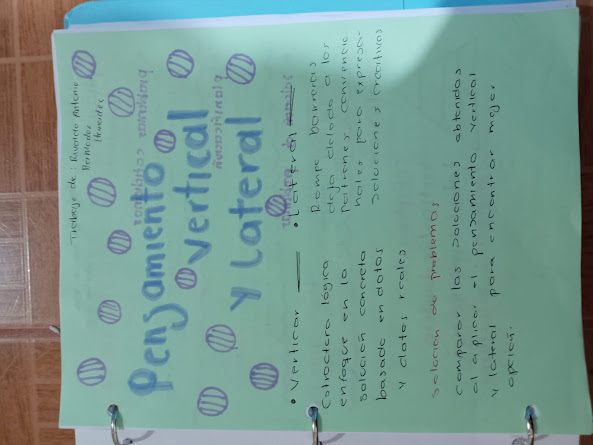 Trabajo de: Ricardo Antonio
Bermudez
Pensamiento
vertical
y Lateral
• Verticar
Estroctora lógica
enfoque en la
solución concreta
basado en datos
y datos reales
• Lateral
Rompe barreras
deja delado a los
Patrones convencio
nales para expresar
soluciones creativas
Solución de problemas
comparar las soluciones obtenidas
al aplicar el pensamiento vertical
y latral para encontrar mejor
opción.